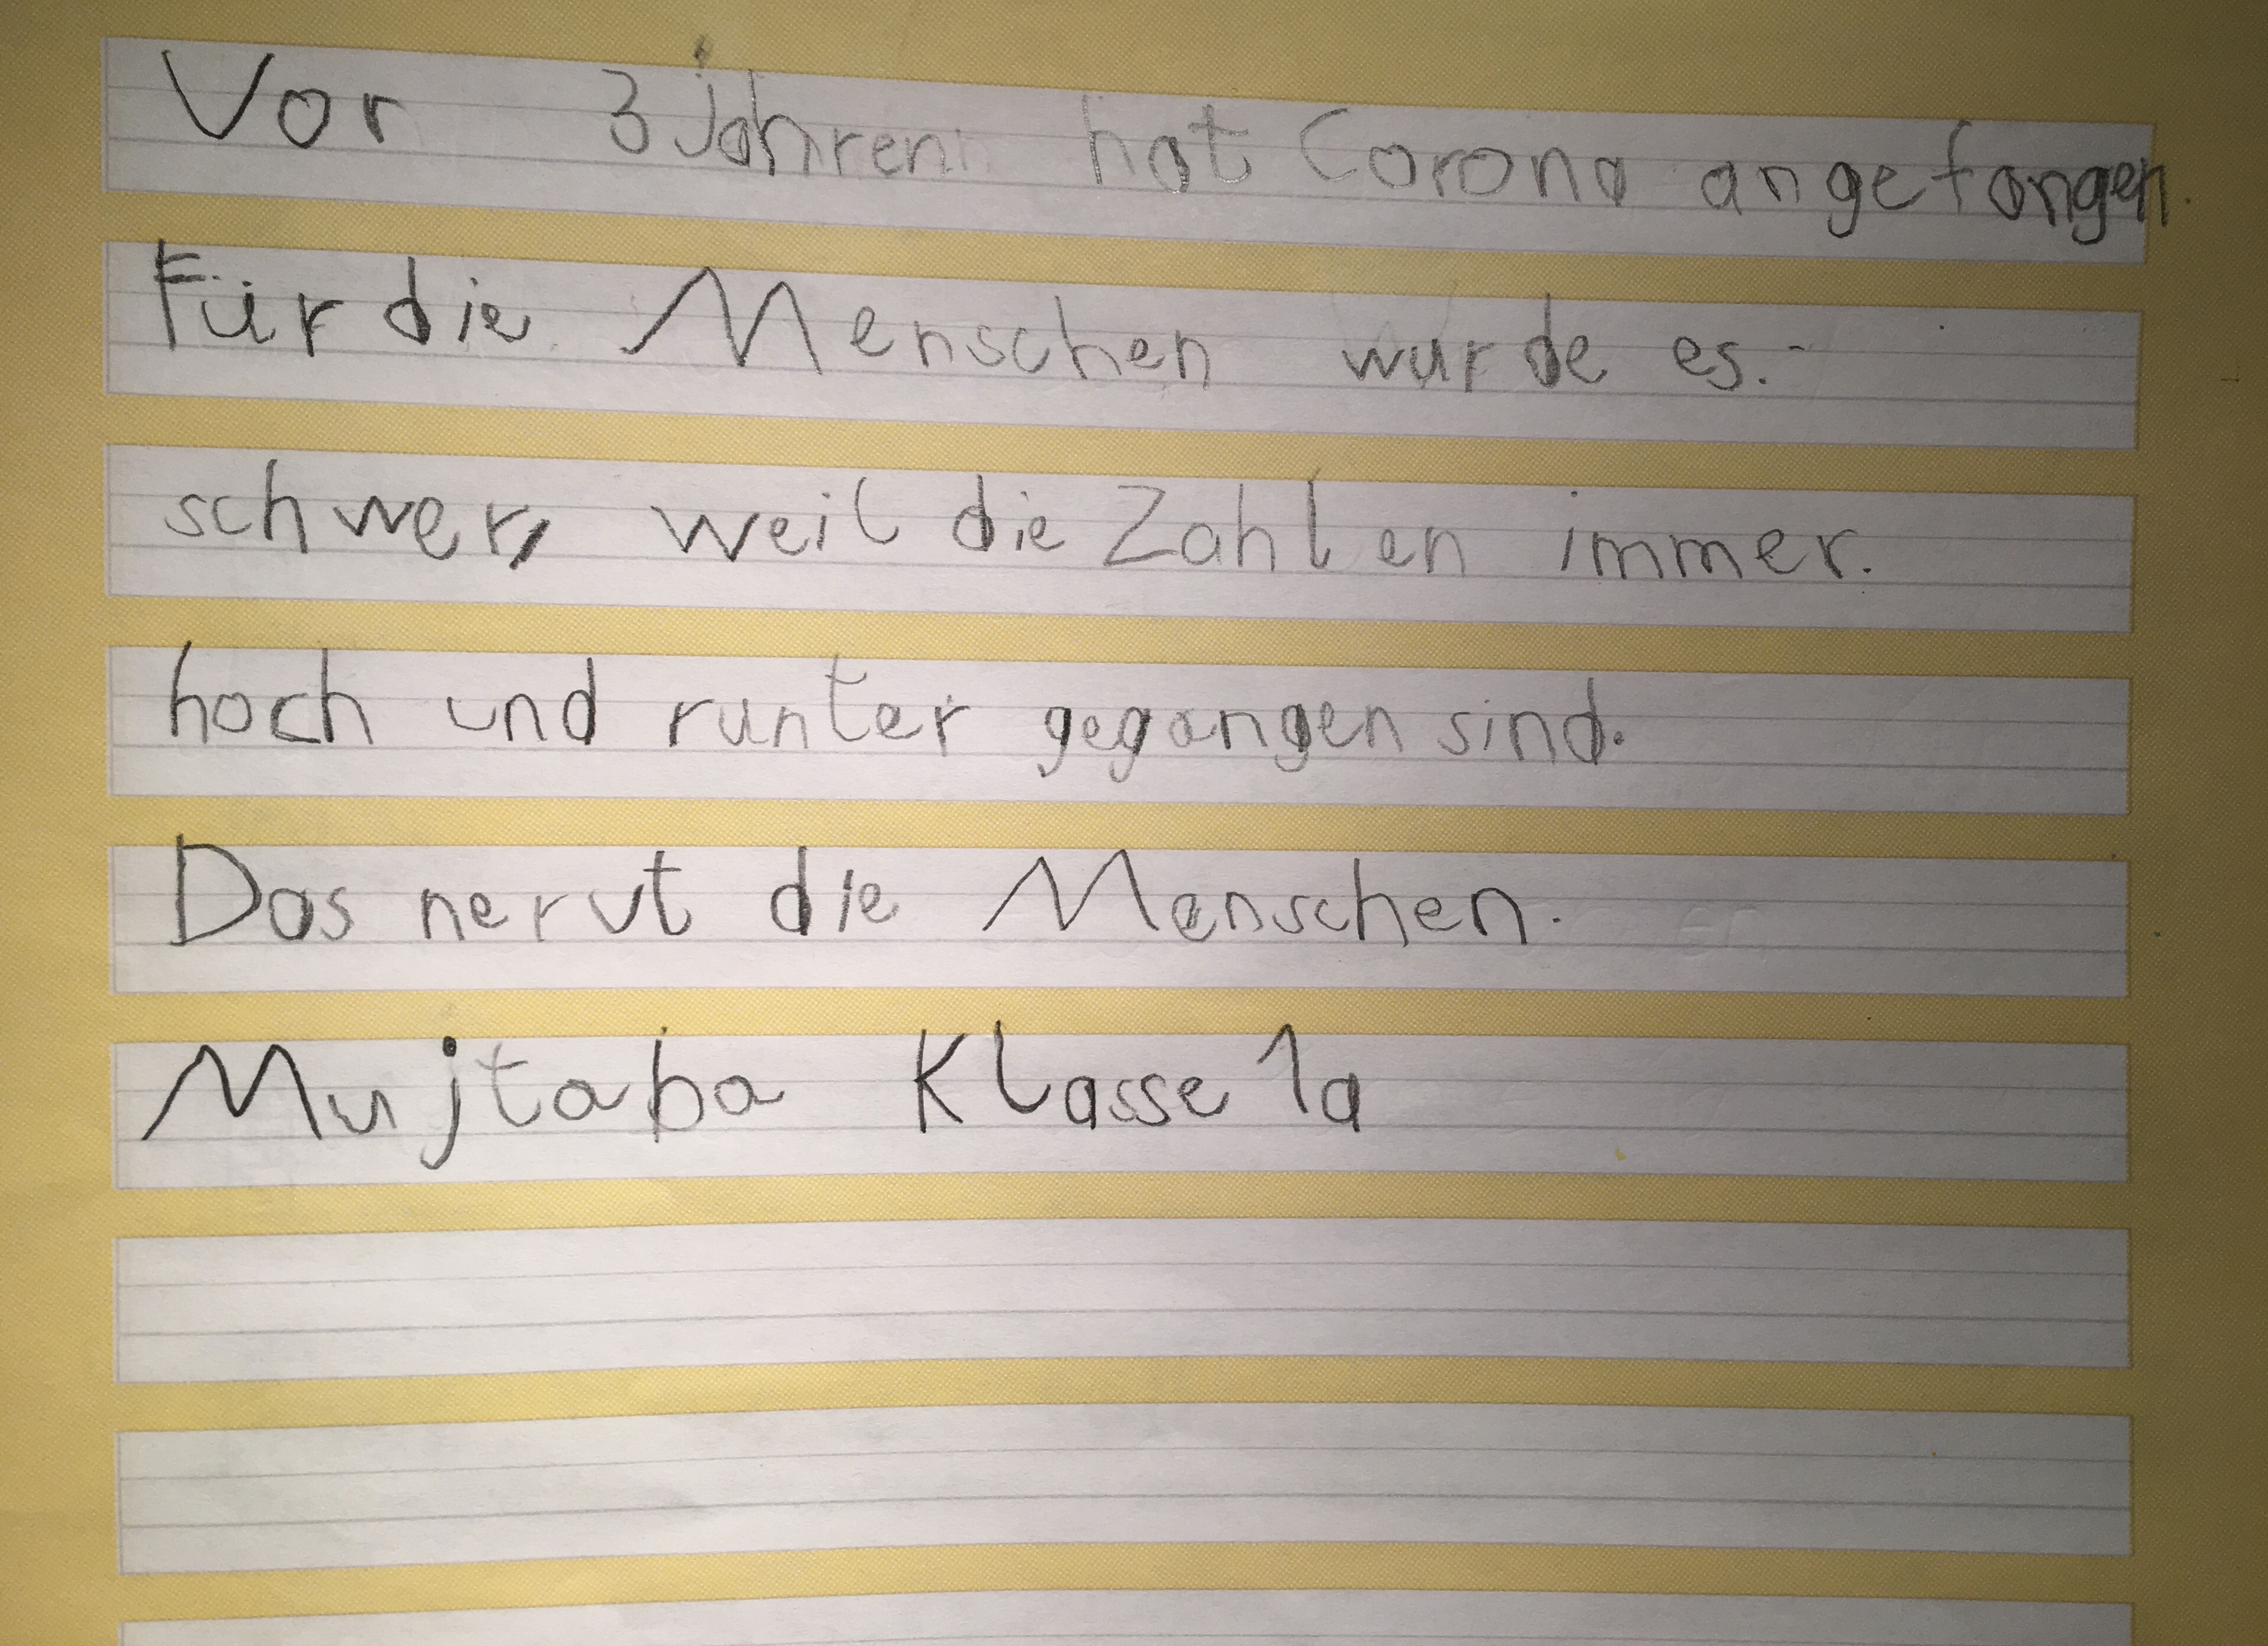 Vor 3 jahren hat Corona angefangen.
Für die Menschen wurde es.-
schwer, weil die Zahlen immer.
hoch und runter gegangen sind.
Das nervt die Menschen.
Mujtaba Klasse 1a